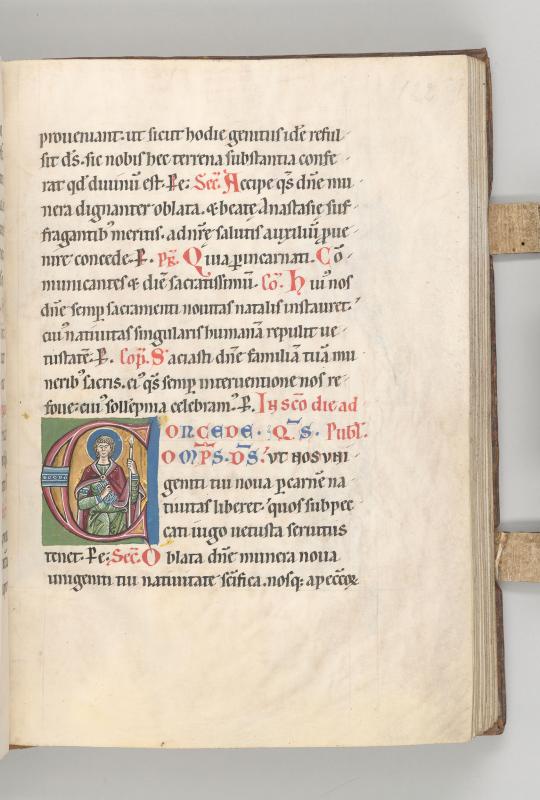 proveniant. ut sicut hodie genitus idē reful
sit dꝰ. sic nobis hec terrena substantia confe
rat qd̄ diuinū est. P̄e; Secr̄. Accipe qs̄ dn̄e mu
nera dignanter oblata. & beate Anastasie suf
fragantibꝰ meritis. ad nr̄e salutis auxiliū ꝓue
nire concede. P̄. pr̄. Quia ꝑ incarnati. Cō
municantes & diē sacratissimū. Cō. Huiꝰ nos
dn̄e semꝑ sacramenti nouitas natalis instauret.
cuiꝰ natiuitas singularis humanā repulit ue
tustatē. P̄. Cōp̄. Saciasti dn̄e familiā tuā mu
neribꝰ sacris. eiꝰ qs̄ semꝑ interuentione nos re
foue. cuiꝰ sollempnia celebramꝰ. P̄. In sc̄o die ad
CONCEDE. QS̄. Publ̄.
OMP̄S. DS̄. ut nos uni
geniti tui noua ꝑ carnē na
tiuitas liberet. quos sub pec
cati iugo uetusta seruitus
tenet. P̄e; Secr̄. Oblata dn̄e munera noua
unigeniti tui natiuitate sc̄ifica. nosq; a peccōꝝ